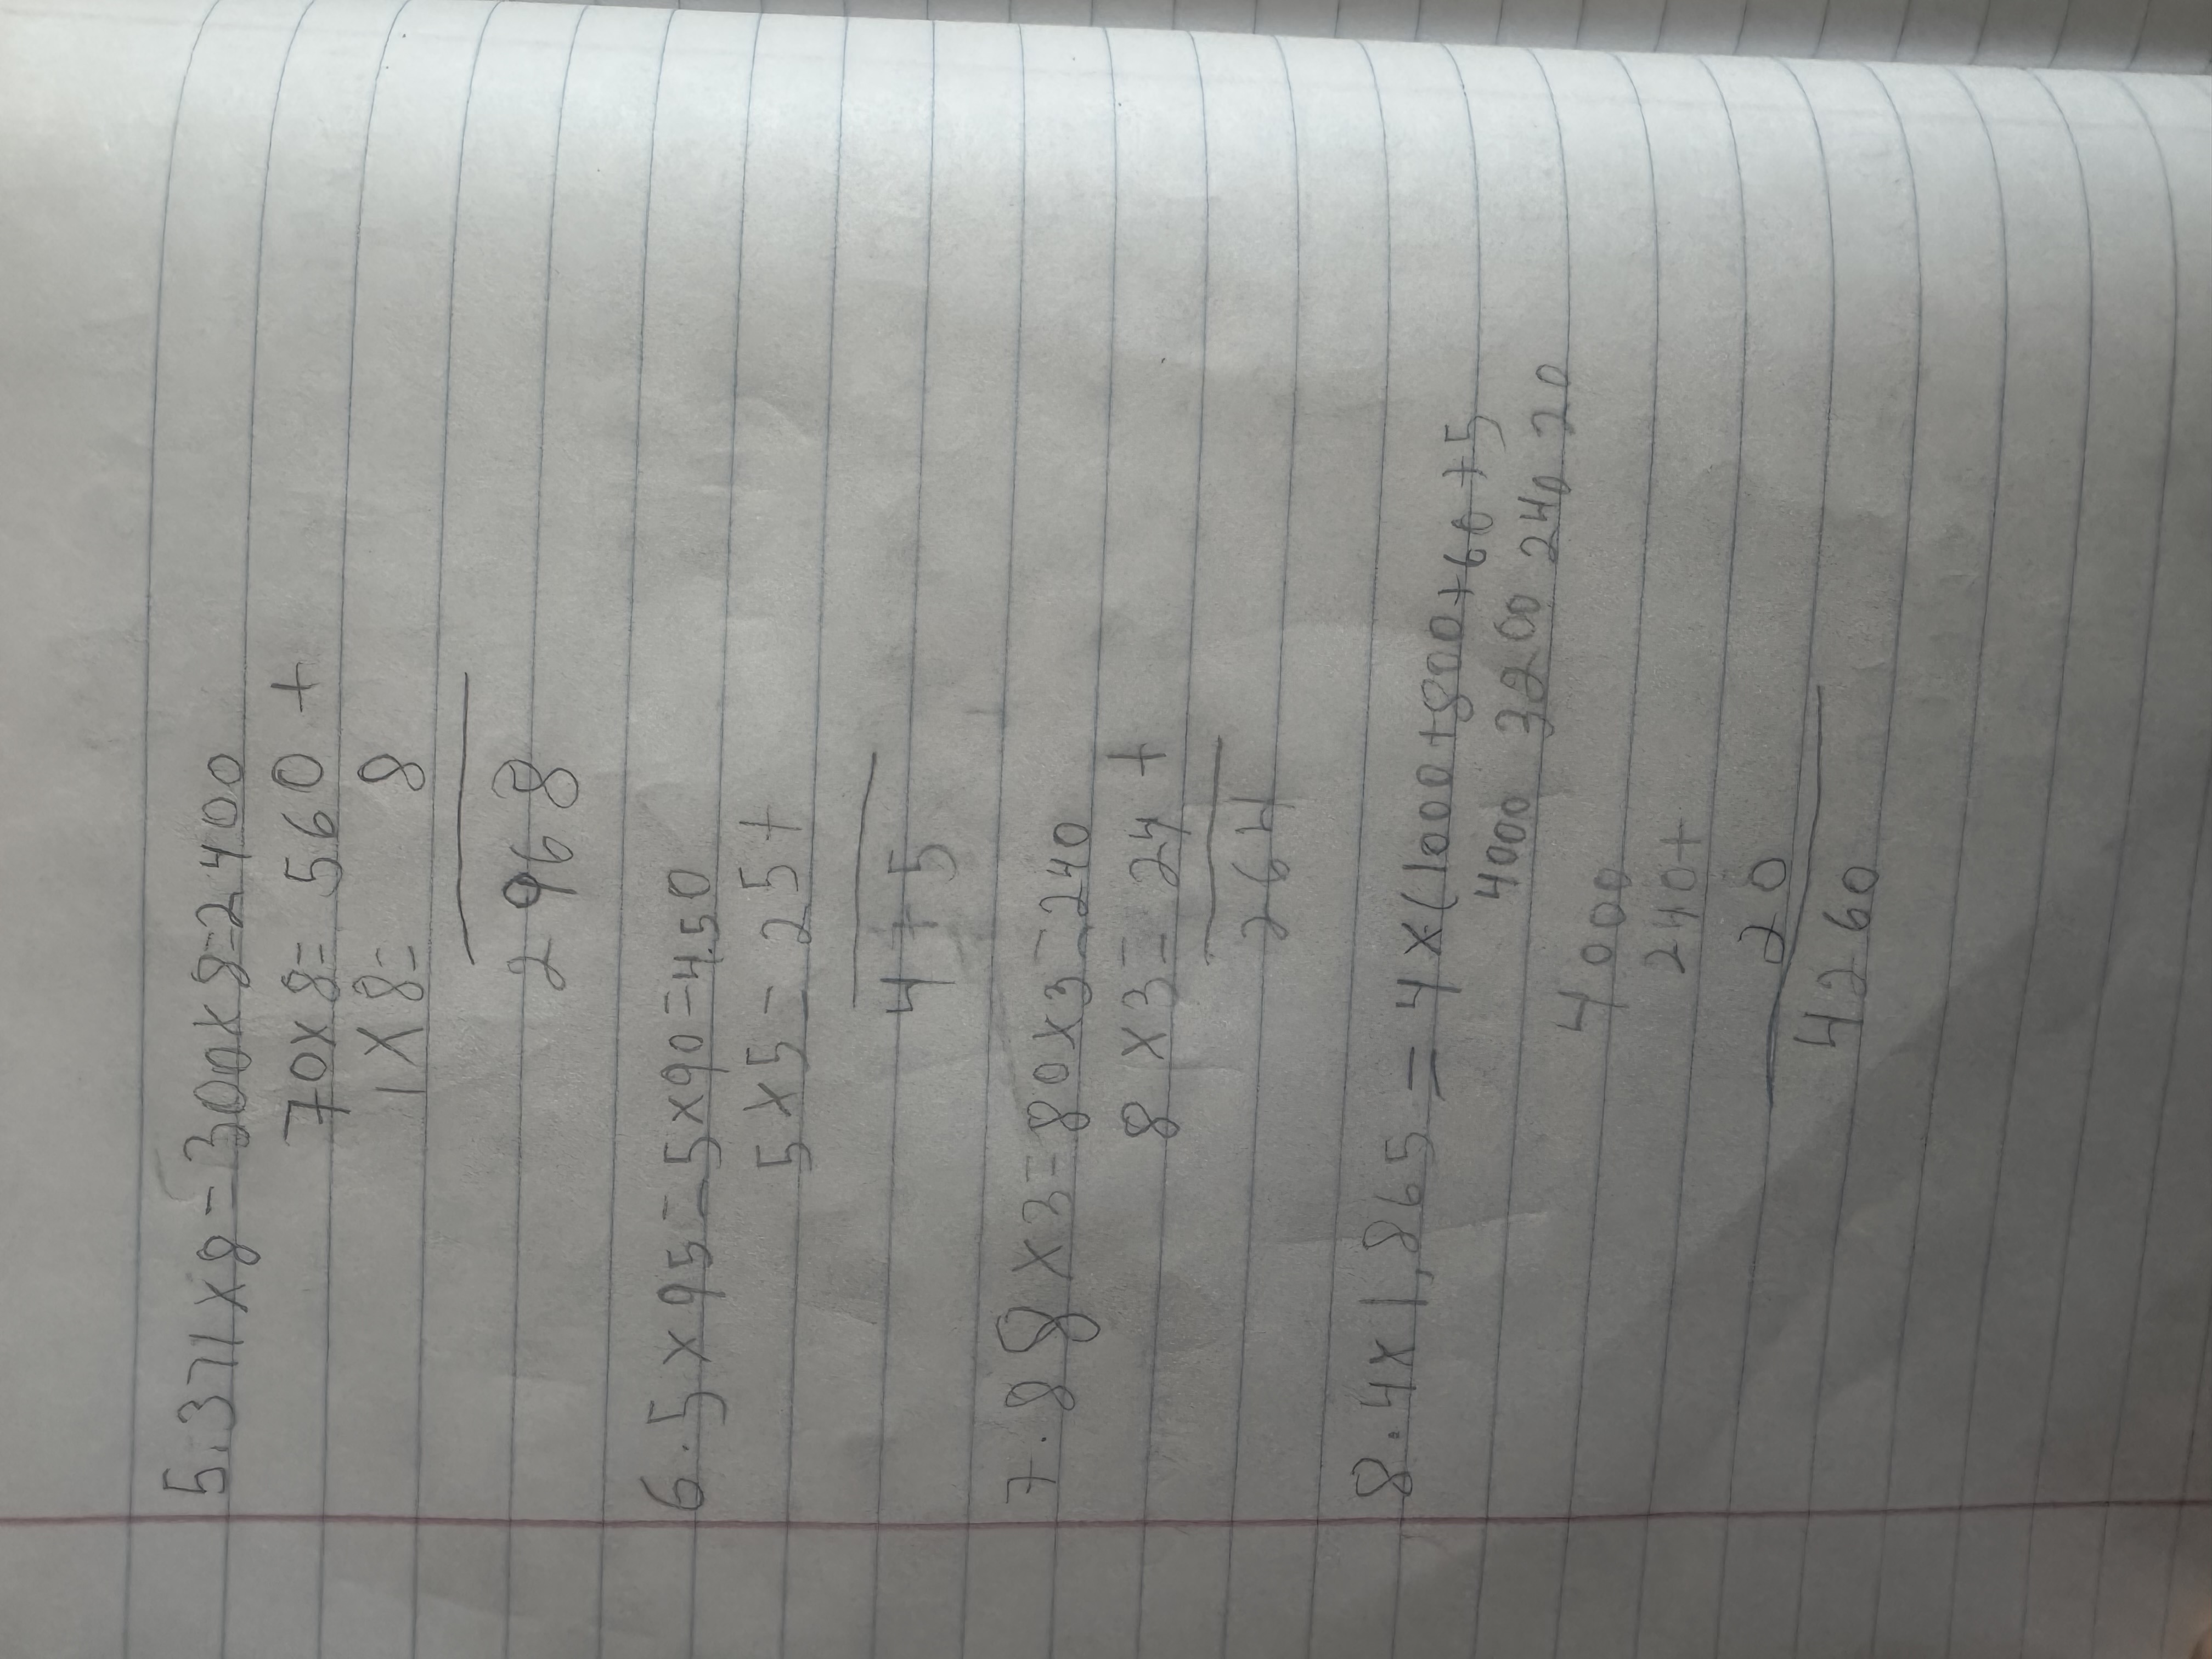 5. 371x8=300x8=2400
70x8= 560 +
1x8= 8
2968
6. 5x95=5x90=4.50
5x5= 25+
475
7. 88x3=80x3=240
8x3= 24 +
264
8. 4x1,865 = 4x(1000+800+60+5
4000 3200 240 20
4000
240+
20
4260